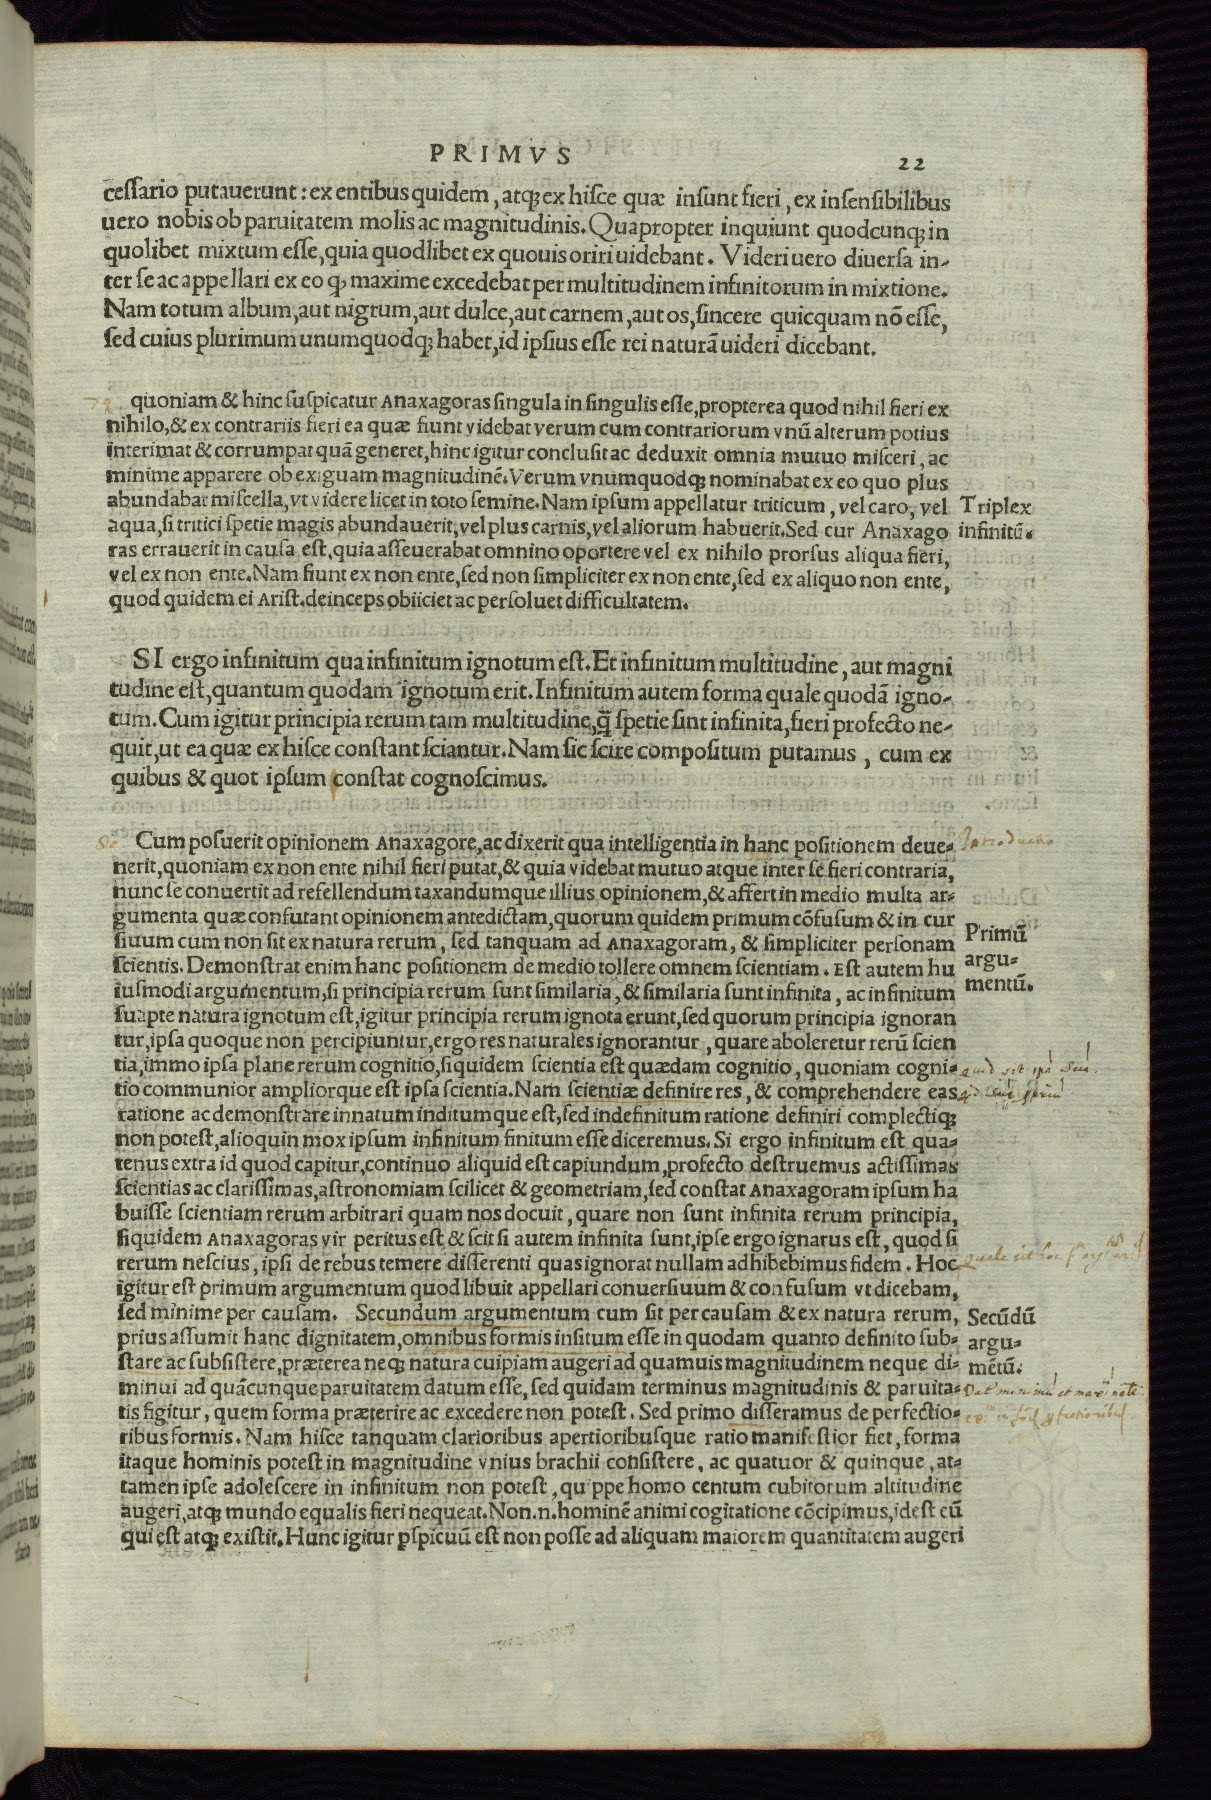 PRIMVS
22
cessario putauerunt: ex entibus quidem, atq; ex hisce quæ insunt fieri, ex insensibilibus
uero nobis ob paruitatem molis ac magnitudinis. Quapropter inquiunt quodcunq; in
quolibet mixtum esse, quia quodlibet ex quouis oriri uidebant. Videri uero diuersa in-
ter se ac appellari ex eo q; maxime excedebat per multitudinem infinitorum in mixtione.
Nam totum album, aut nigrum, aut dulce, aut carnem, aut os, sincere quicquam nō esse,
sed cuius plurimum unumquodq; habet, id ipsius esse rei naturā uideri dicebant.
79
quoniam & hinc suspicatur Anaxagoras singula in singulis esse, propterea quod nihil fieri ex
nihilo, & ex contrariis fieri ea quæ fiunt videbat verum cum contrariorum vnū alterum potius
interimat & corrumpat quā generet, hinc igitur conclusit ac deduxit omnia mutuo misceri, ac
minime apparere ob exiguam magnitudinē. Verum vnumquodq; nominabat ex eo quo plus
abundabat miscella, vt videre licet in toto semine. Nam ipsum appellatur triticum, vel caro, vel
aqua, si tritici spetie magis abundauerit, vel plus carnis, vel aliorum habuerit. Sed cur Anaxago
ras errauerit in causa est, quia asseuerabat omnino oportere vel ex nihilo prorsus aliqua fieri,
vel ex non ente. Nam fiunt ex non ente, sed non simpliciter ex non ente, sed ex aliquo non ente,
quod quidem ei Arist. deinceps obiiciet ac persoluet difficultatem.
Triplex
infinitū.
SI ergo infinitum qua infinitum ignotum est. Et infinitum multitudine, aut magni
tudine est, quantum quodam ignotum erit. Infinitum autem forma quale quodā igno-
tum. Cum igitur principia rerum tam multitudine, q̄ spetie sint infinita, fieri profecto ne-
quit, ut ea quæ ex hisce constant sciantur. Nam sic scire compositum putamus, cum ex
quibus & quot ipsum constat cognoscimus.
80
Cum posuerit opinionem Anaxagore, ac dixerit qua intelligentia in hanc positionem deue-
nerit, quoniam ex non ente nihil fieri putat, & quia videbat mutuo atque inter se fieri contraria,
nunc se conuertit ad refellendum taxandumque illius opinionem, & affert in medio multa ar-
gumenta quæ confutant opinionem antedictam, quorum quidem primum cōfusum & in cur
siuum cum non sit ex natura rerum, sed tanquam ad Anaxagoram, & simpliciter personam
scientis. Demonstrat enim hanc positionem de medio tollere omnem scientiam. Est autem hu
iusmodi argumentum, si principia rerum sunt similaria, & similaria sunt infinita, ac infinitum
suapte natura ignotum est, igitur principia rerum ignota erunt, sed quorum principia ignoran
tur, ipsa quoque non percipiuntur, ergo res naturales ignorantur, quare aboleretur rerū scien
tia, immo ipsa plane rerum cognitio, siquidem scientia est quædam cognitio, quoniam cogni-
tio communior ampliorque est ipsa scientia. Nam scientiæ definire res, & comprehendere eas
ratione ac demonstrare innatum inditumque est, sed indefinitum ratione definiri complectiq;
non potest, alioquin mox ipsum infinitum finitum esse diceremus. Si ergo infinitum est qua-
tenus extra id quod capitur, continuo aliquid est capiundum, profecto destruemus actissimas
scientias ac clarissimas, astronomiam scilicet & geometriam, sed constat Anaxagoram ipsum ha
buisse scientiam rerum arbitrari quam nos docuit, quare non sunt infinita rerum principia,
siquidem Anaxagoras vir peritus est & scit si autem infinita sunt, ipse ergo ignarus est, quod si
rerum nescius, ipsi de rebus temere disserenti quas ignorat nullam adhibebimus fidem. Hoc
igitur est primum argumentum quod libuit appellari conuersiuum & confusum vt dicebam,
sed minime per causam. Secundum argumentum cum sit per causam & ex natura rerum,
prius assumit hanc dignitatem, omnibus formis insitum esse in quodam quanto definito sub-
stare ac subsistere, præterea neq; natura cuipiam augeri ad quamuis magnitudinem neque di-
minui ad quācunque paruitatem datum esse, sed quidam terminus magnitudinis & paruita-
tis figitur, quem forma præterire ac excedere non potest. Sed primo disseramus de perfectio-
ribus formis. Nam hisce tanquam clarioribus apertioribusque ratio manifestior fiet, forma
itaque hominis potest in magnitudine vnius brachii consistere, ac quatuor & quinque, at-
tamen ipse adolescere in infinitum non potest, quippe homo centum cubitorum altitudine
augeri, atq; mundo equalis fieri nequeat. Non .n. hominē animi cogitatione cōcipimus, idest cū
qui est atq; existit. Hunc igitur pspicuū est non posse ad aliquam maiorem quantitatem augeri
Introductio
Primū
argu-
mentū.
Secūdū
argu-
mētū.